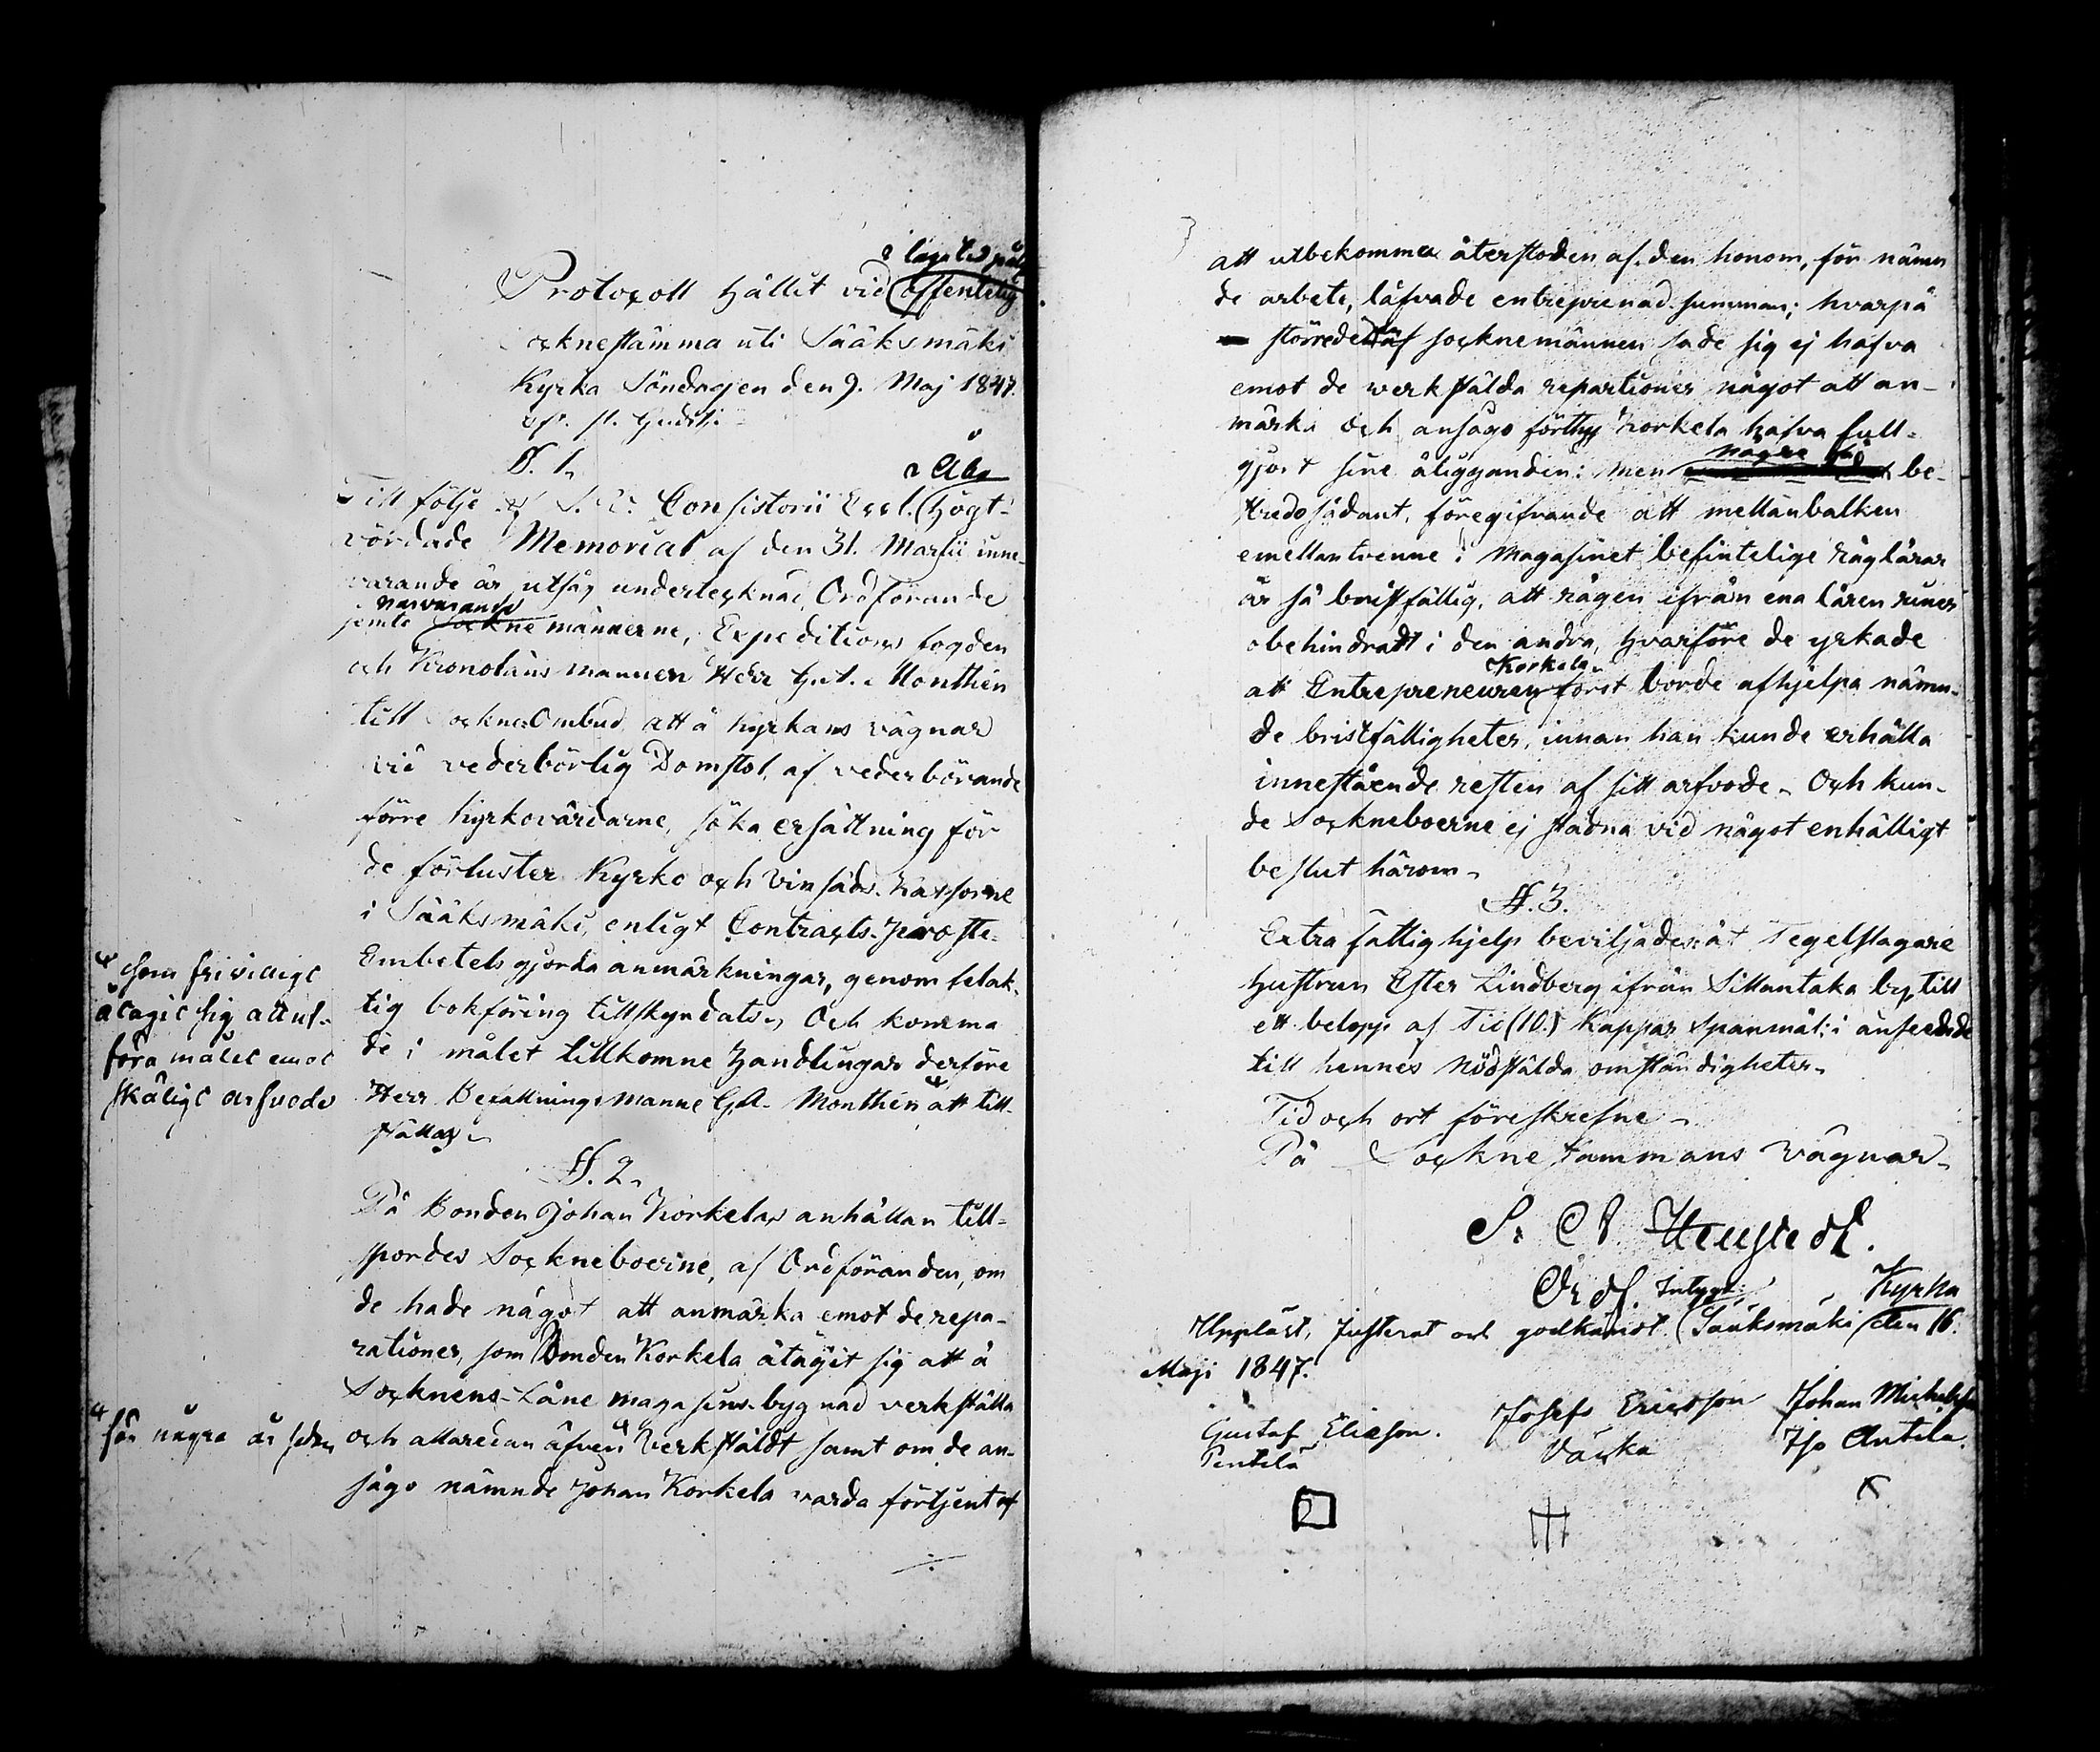 lagl. ed
Protocoll hållit vid offentelig
Socknestämma uti Sääksmäki
Kyrka Söndagen den 9. Maj 1847.
ef. sl. Gudstj.
§. 1.
Åbo
Till följe af S. R. Consistorii Eccl. Högt-
vördade Memorial af den 31. Martii inne-
varande år utsåg undertecknad Ordförande
närvarande
jemte Sockne männerne, Expeditions fogden
och Kronolänsmannen Herr G. A. Monthén
till Sockne Ombud att å kyrkans vägnar
vid vederbörlig Domstol, af vederbörande
förre kyrkovärdarne, söka ersättning för
de förluster Kyrko och Vinsäds kassorne
i Sääksmäki, enligt Contracts-Proste-
Embetets gjorda anmärkningar, genom felak-
tig bokföring tillskyndats, Och komma
de i målet tillkomne Handlingar derföre
Herr Befallningsmannen G. A. Monthén att till-
ställas.
som frivilligt
åtagit sig att ut-
föra målet emot
skäligt arfvode
§. 2.
På Bonden Johan Korkelas anhållan till-
spordes Sockneboerne, af Ordföranden, om
de hade något att anmärka emot de repa-
rationer, som Bonden Korkela åtagit sig att å
Socknens-Låne magasins-bygnad verkställa
och allaredan äfven verkställdt samt om de an-
sågo nämnde Johan Korkela varda förtjent af
för några år sedan
att utbekomma återstoden af den honom, för nämn
de arbete, låfvade entreprenad summan; hvarpå
större delen af socknemännen sade sig ej hafva
emot de werkstälda repartioner något att an-
märka och ansågo förthy Korkela hafva full-
gjort sine åligganden: men några be-
stredo sådant, föregifvande att mellanbalken
emellan tvenne i Magasinet befintelige Råglårar
är så bristfällig, att rågen ifrån ena låren runer
obehindradt i den andra, hvarföre de yrkade
Korkela
att Entrepreneuren först borde afhjelpa nämn-
de bristfälligheter, innan han kunde erhålla
innestående resten af sitt arfvode. Och kun-
de Sockneboerne ej stadna vid något enhälligt
beslut härom.
§. 3.
Extra fattighjelp beviljades åt Tegelslagare
Hustrun Ester Lindberg ifrån Sillantaka by, till
ett belopp af Tio (10.) Kappar Spanmål; i anseende
till hennes nödstälda omständigheter.
Tid och ort föreskrefne
På Sockne stammans vägnar
Ordf. Intygr:
Kyrka
Uppläst, Justerat och godkändt Sääksmäki den 16.
Maji 1847.
Gustaf Eliasson. Josefs Ericsson Johan Michelsson
Pentilä Väcka Iso Antila.